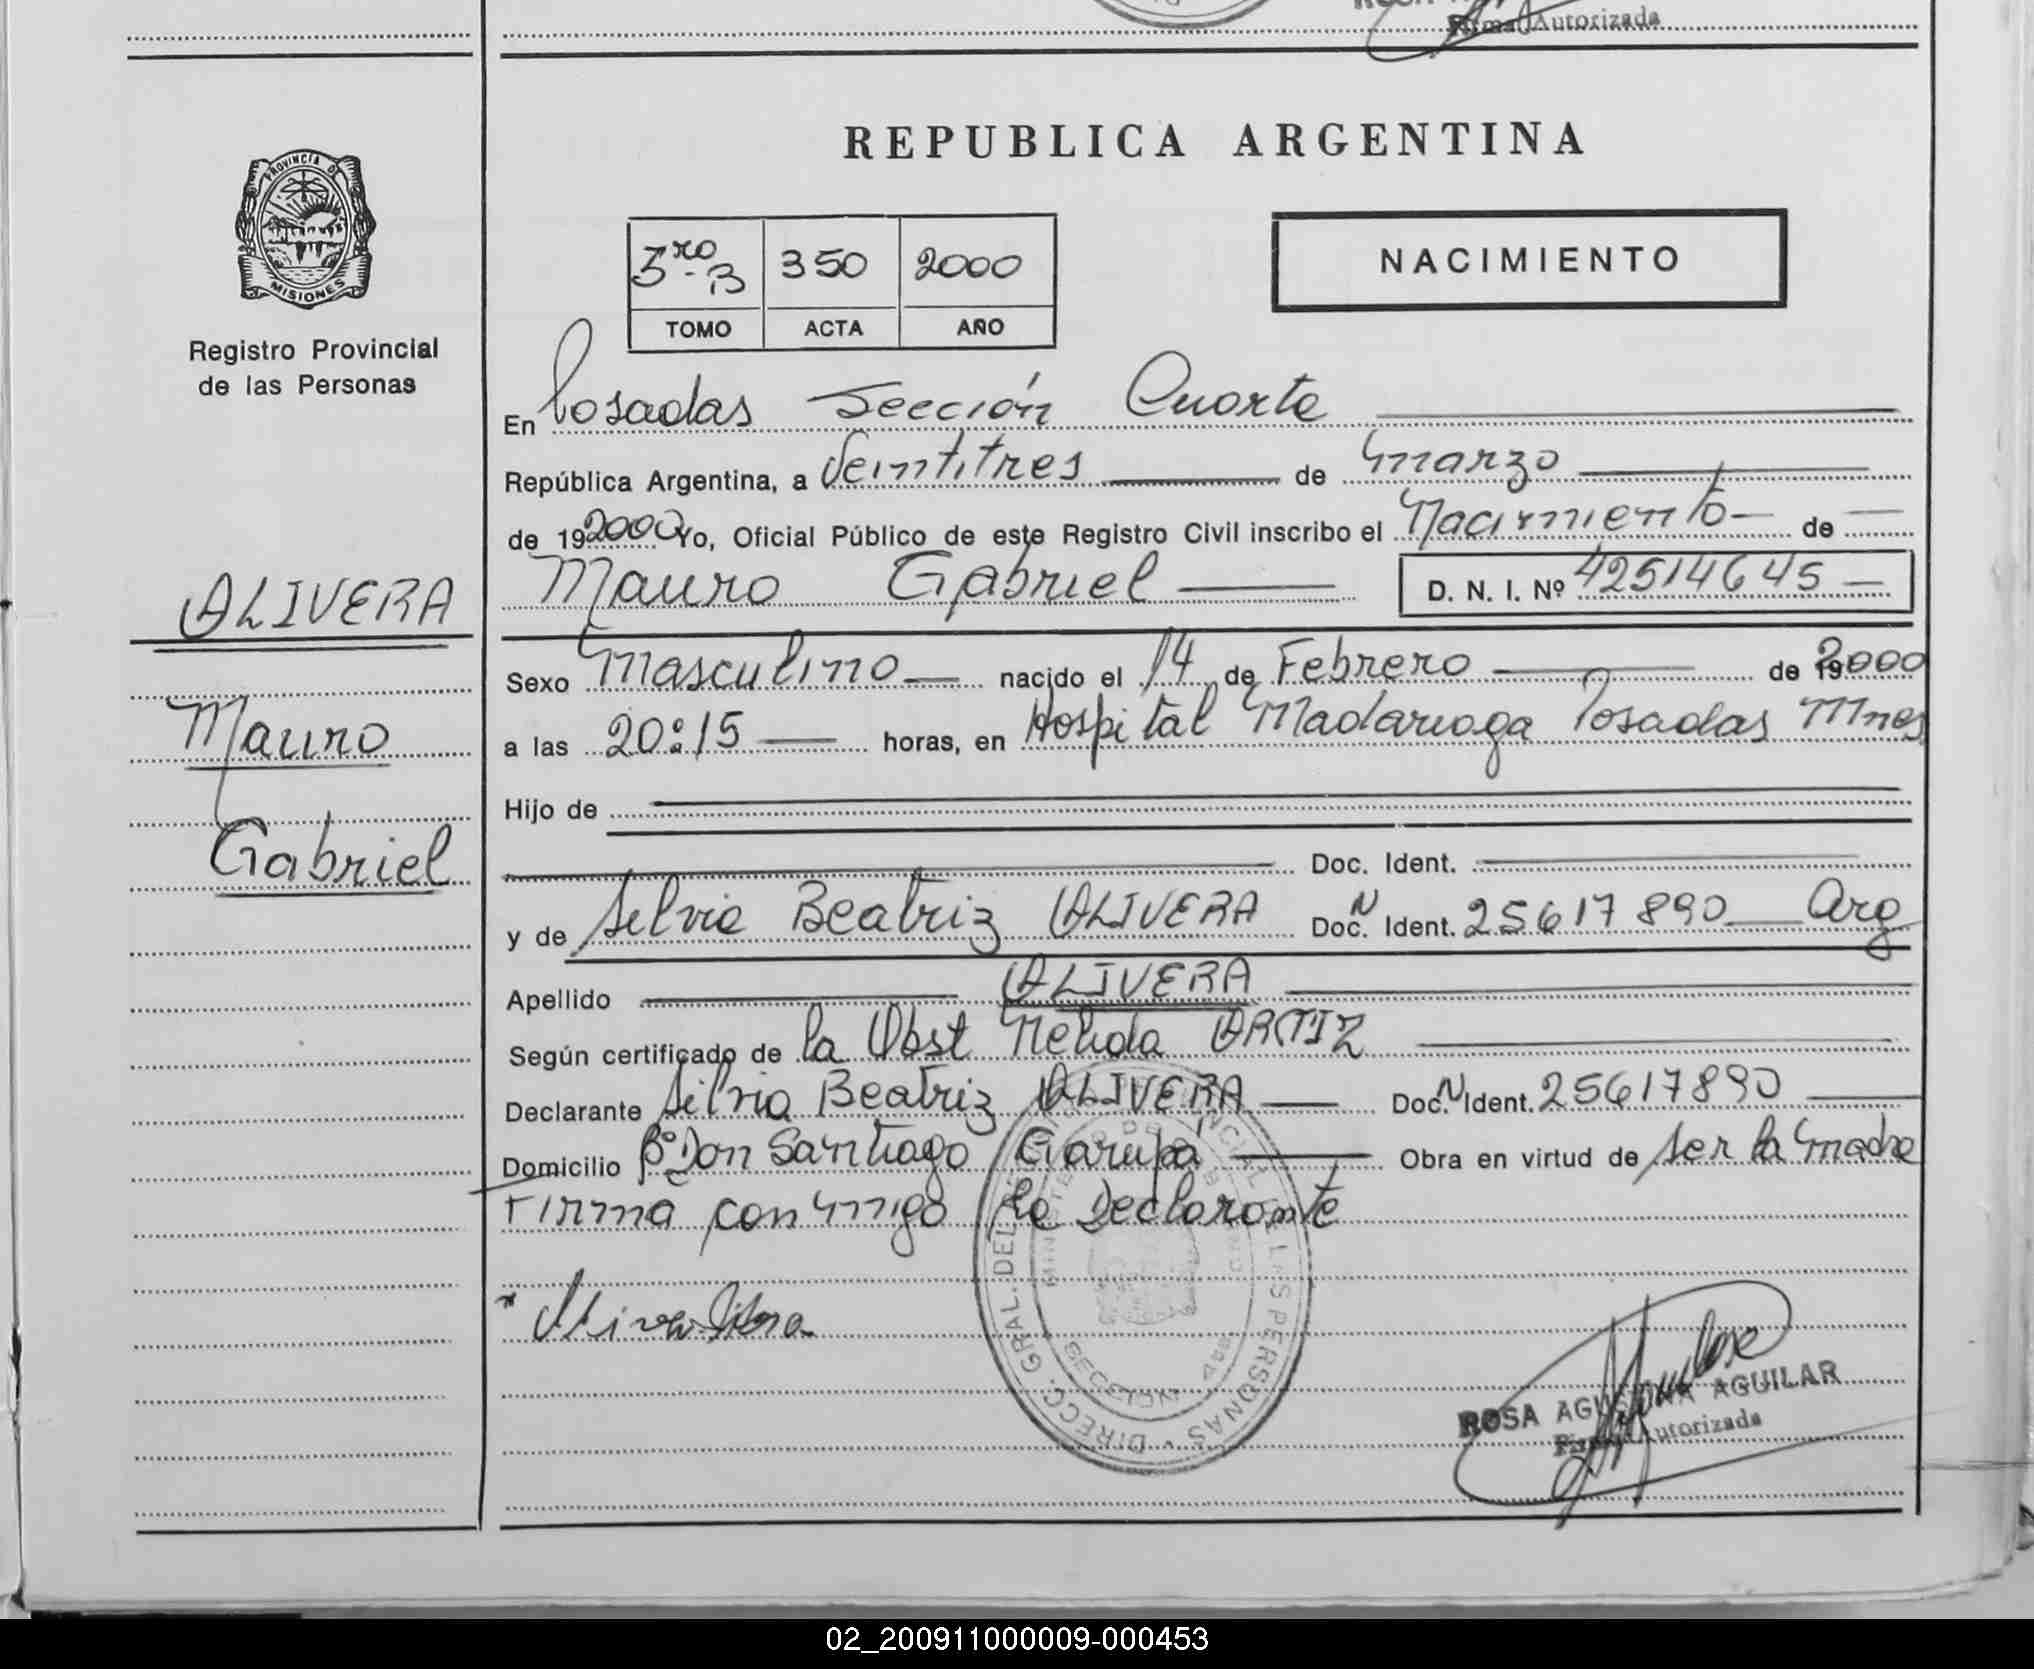 Firma Autorizada
PROVINCIA DE
MISIONES
Registro Provincial
de las Personas
ALIVERA
Mauro
Gabriel
REPUBLICA ARGENTINA
3ro-B 350 2000
TOMO ACTA AÑO
NACIMIENTO
En Posadas Sección Cuarta
República Argentina, a Veintitres de Marzo
de 192000 Yo, Oficial Público de este Registro Civil inscribo el Nacimiento de
Mauro Gabriel D. N. I. Nº 42514645
Sexo Masculino nacido el 14 de Febrero de 192000
a las 20:15 horas, en Hospital Madariaga Posadas Mnes
Hijo de
Doc. Ident.
y de Silvia Beatriz ALIVERA Doc. N Ident. 25617890 Arg
Apellido ALIVERA
Según certificado de la Obst Nelida ORTIZ
Declarante Silvia Beatriz ALIVERA Doc. N Ident. 25617890
Domicilio Bº Don Santiago Garupá Obra en virtud de ser la Madre
Firma conmigo la Declarante
DIRECC. GRAL. DEL PERSONAS
SECCION
ROSA AGUSTINA AGUILAR
Firma Autorizada
02_200911000009-000453